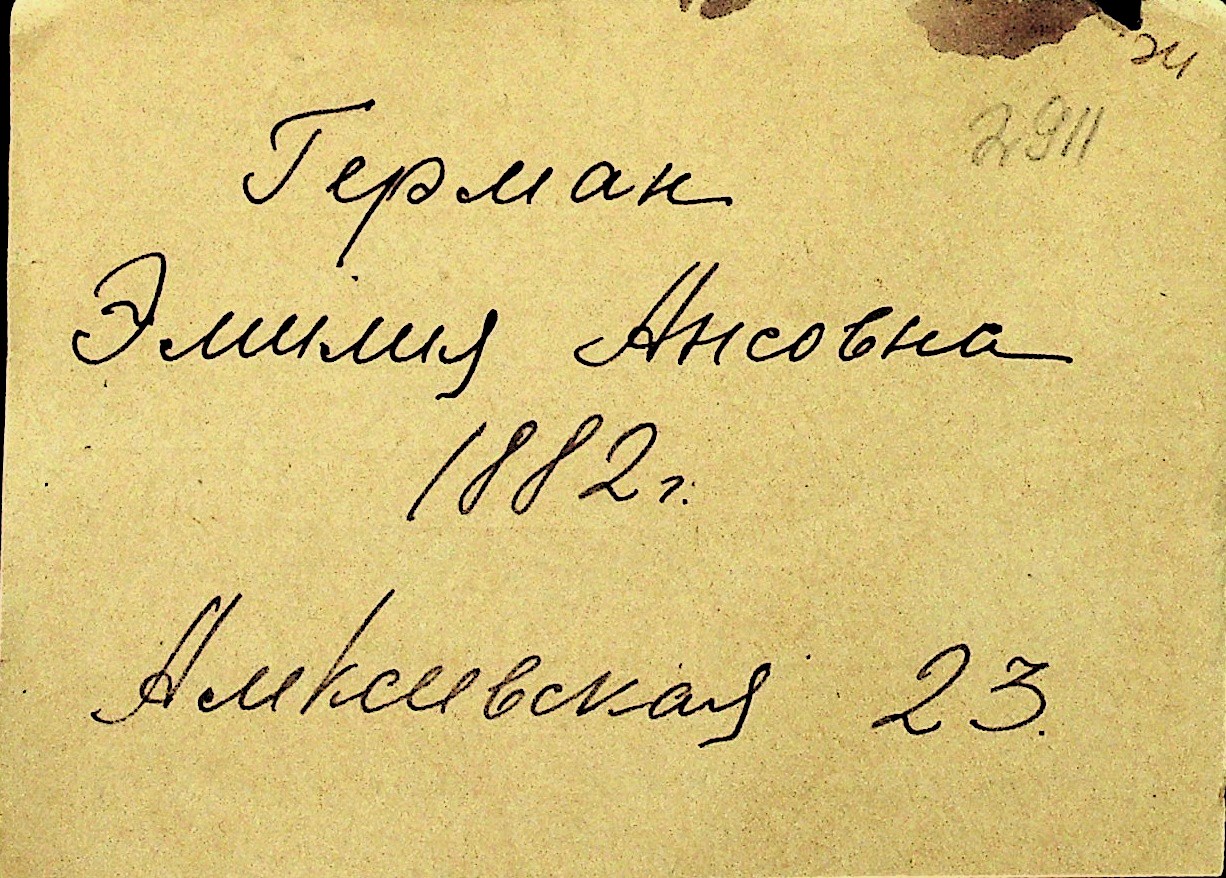 2911
Герман
Эмилия Ансовна
1882 г.
Алексеевская 23.